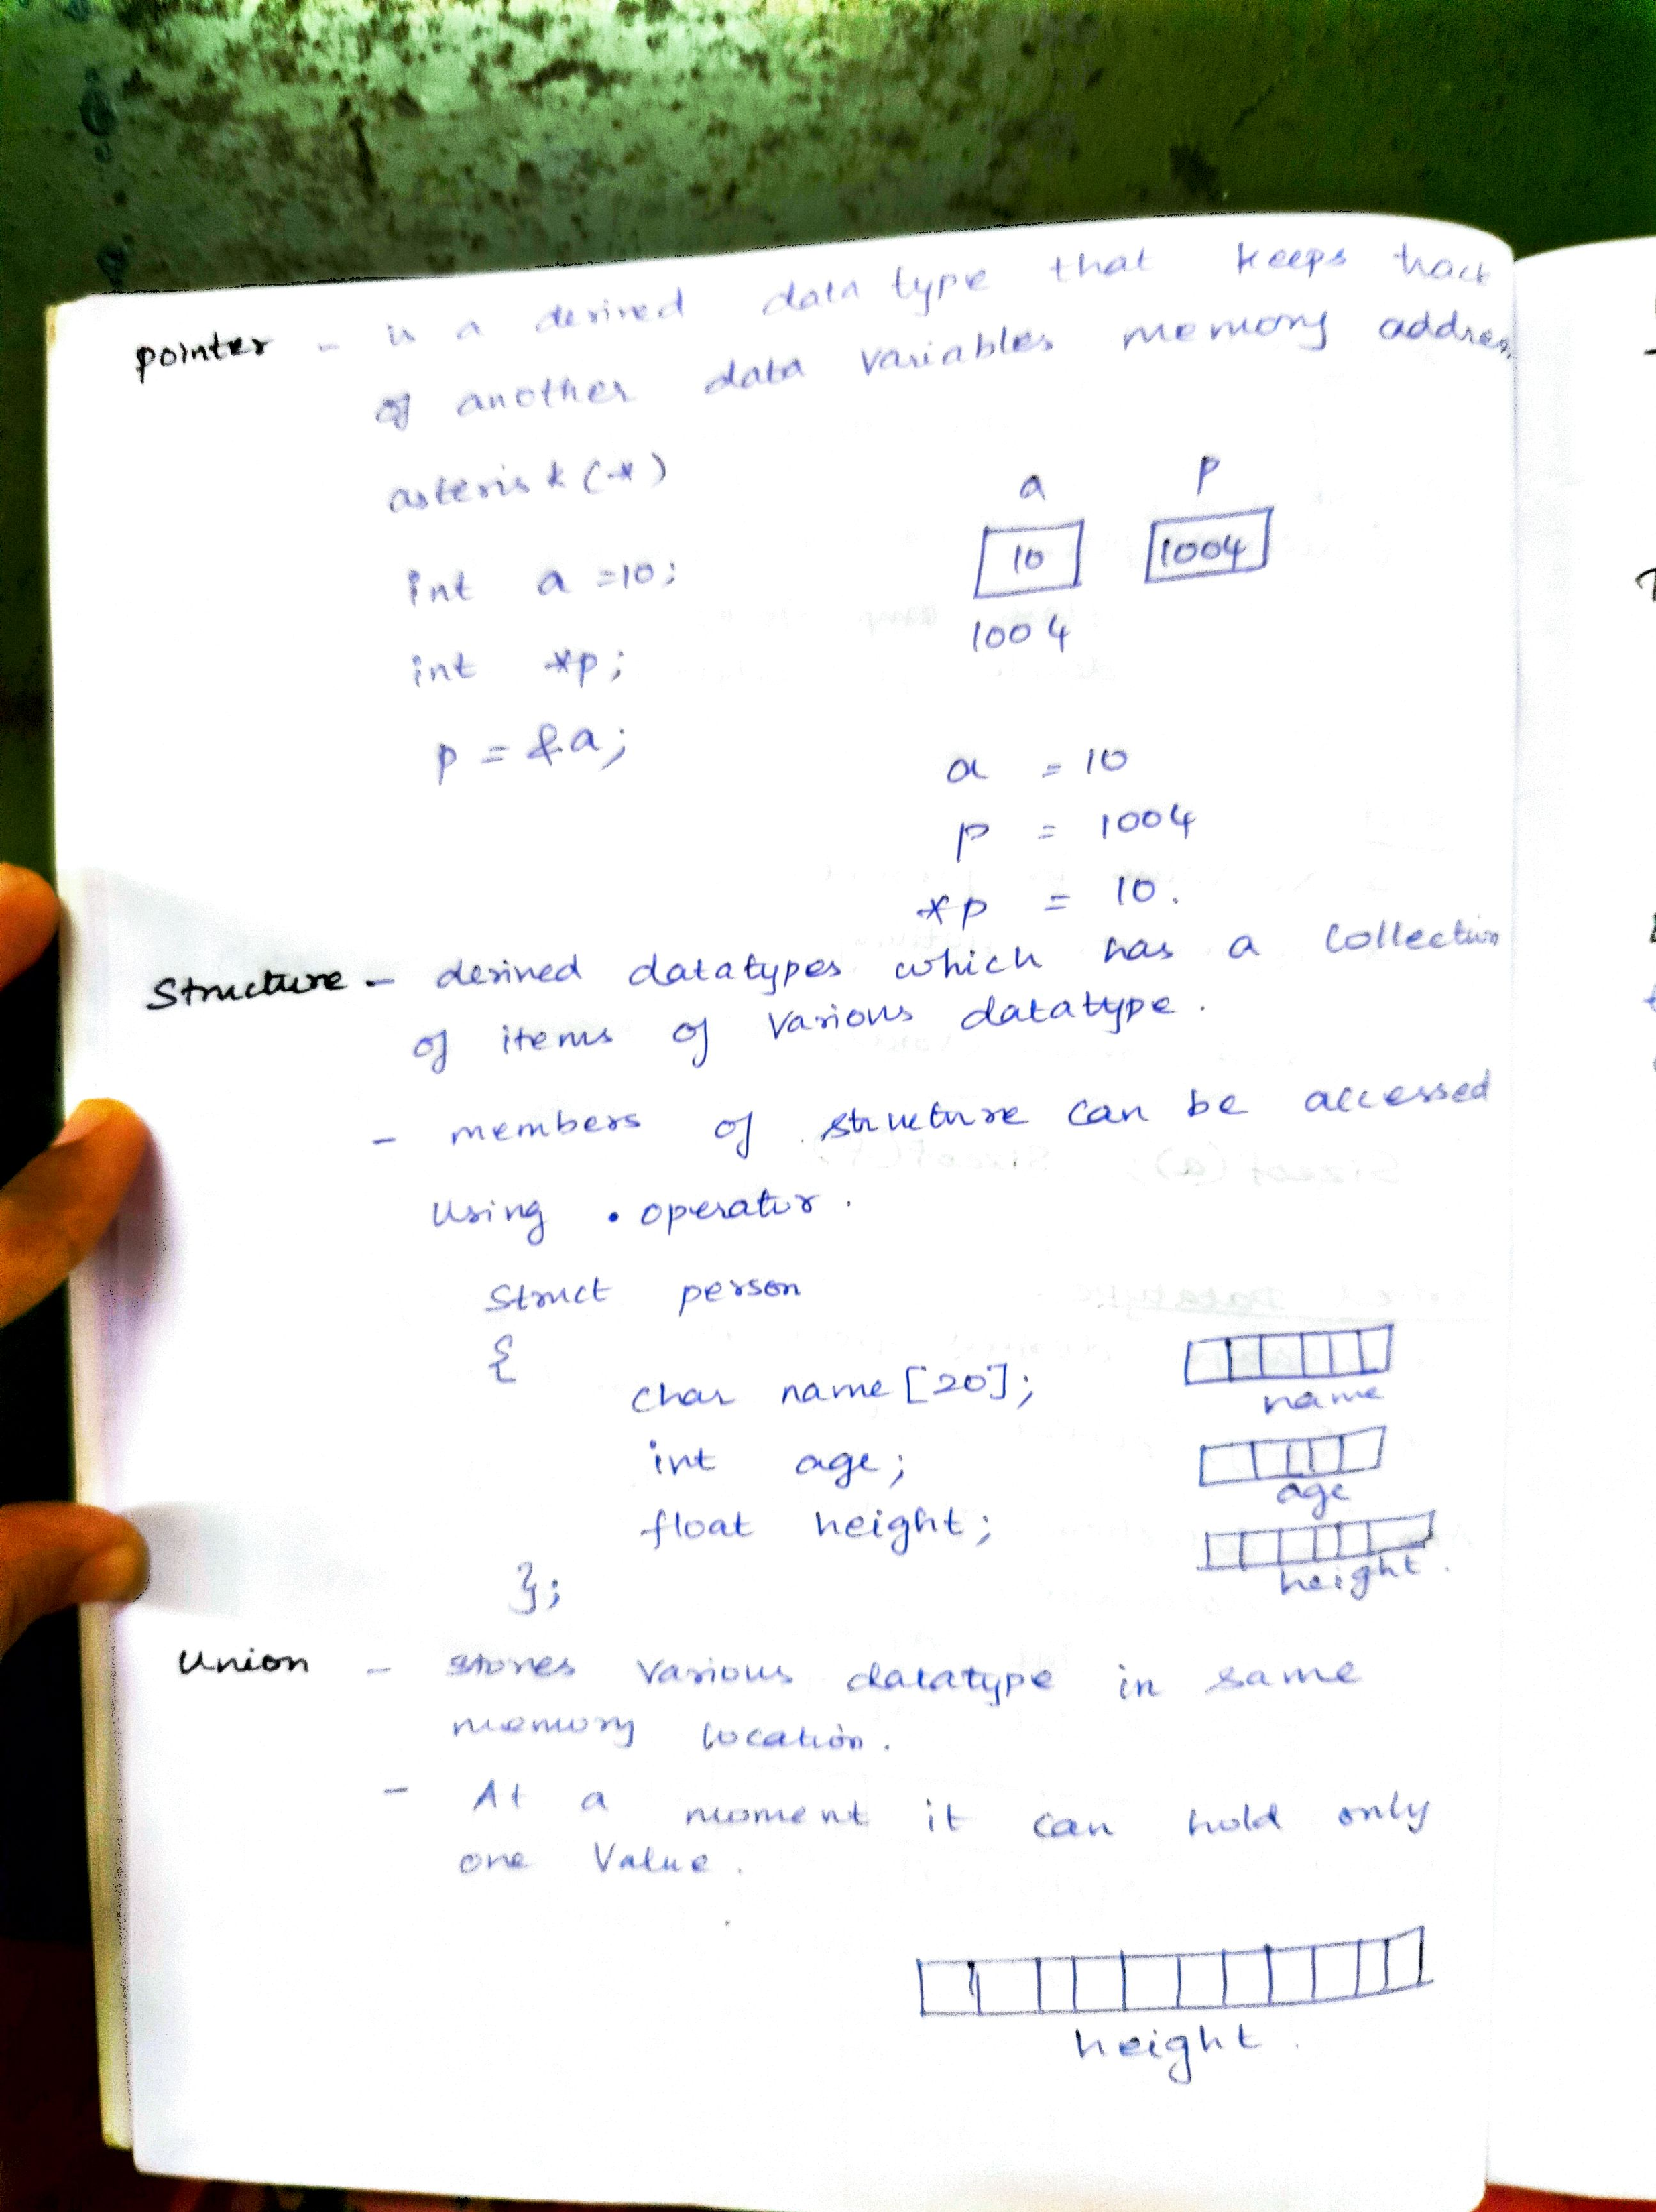 pointer - is a derived data type that keeps track
of another data variables memory address
asterisk (*)
a p
int a =10; 10 1004
int *p; 1004
p = &a;
a = 10
p = 1004
*p = 10.
Structure - derived datatypes which has a collection
of items of various datatype.
- members of structure can be accessed
using . operator.
Struct person
{
char name [20]; name
int age; age
float height; height.
};
Union - stores various datatype in same
memory location.
- At a moment it can hold only
one Value.
height.